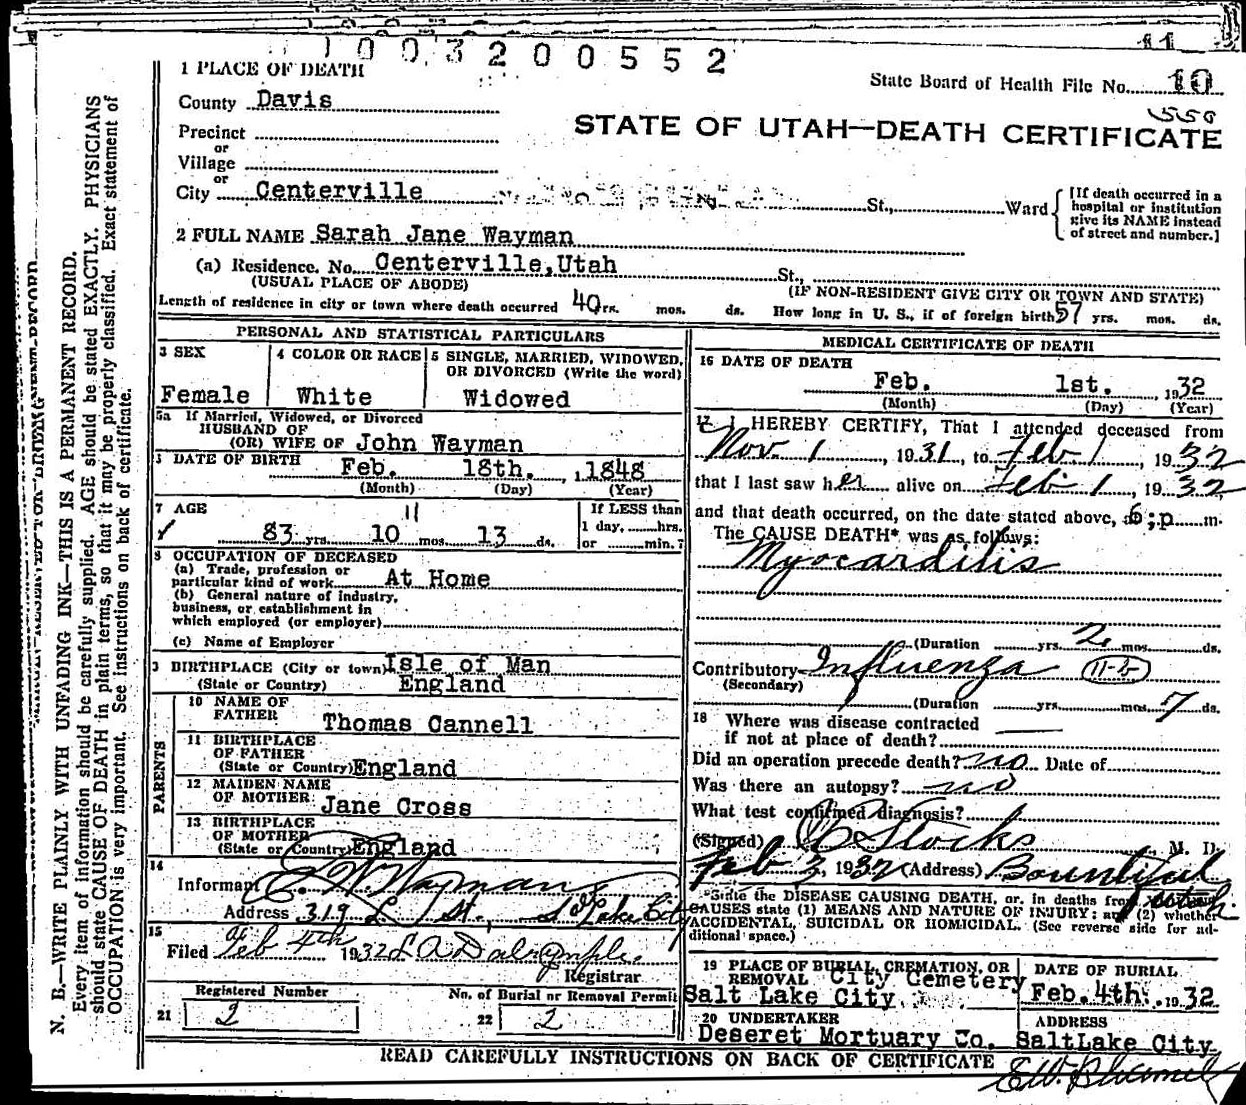 11
1003200552
1 PLACE OF DEATH
State Board of Health File No. 10
County Davis
550
STATE OF UTAH—DEATH CERTIFICATE
Precinct
or
Village
or
City Centerville St., Ward
[If death occurred in a
hospital or institution
give its NAME instead
of street and number.]
2 FULL NAME Sarah Jane Wayman
(a) Residence. No. Centerville, Utah St.,
(USUAL PLACE OF ABODE) (IF NON-RESIDENT GIVE CITY OR TOWN AND STATE)
Length of residence in city or town where death occurred 40 yrs. mos. ds. How long in U. S., if of foreign birth 57 yrs. mos. ds.
PERSONAL AND STATISTICAL PARTICULARS
3 SEX
Female
4 COLOR OR RACE
White
5 SINGLE, MARRIED, WIDOWED,
OR DIVORCED (Write the word)
Widowed
5a If Married, Widowed, or Divorced
HUSBAND OF
(OR) WIFE OF John Wayman
DATE OF BIRTH Feb. 18th. , 1848
(Month) (Day) (Year)
7 AGE
11
83 yrs. 10 mos. 13 ds.
If LESS than
1 day, hrs.
or min.?
8 OCCUPATION OF DECEASED
(a) Trade, profession or
particular kind of work At Home
(b) General nature of industry,
business, or establishment in
which employed (or employer)
(c) Name of Employer
9 BIRTHPLACE (City or town) Isle of Man
(State or Country) England
PARENTS
10 NAME OF
FATHER Thomas Cannell
11 BIRTHPLACE
OF FATHER
(State or Country) England
12 MAIDEN NAME
OF MOTHER Jane Cross
13 BIRTHPLACE
OF MOTHER
(State or Country) England
14
Informant E. W. Wayman
Address 319 L St., S Lake City
15
Filed Feb 4th 1932 L A Dalrymple
Registrar
Registered Number
21 2
No. of Burial or Removal Permit
22 2
MEDICAL CERTIFICATE OF DEATH
16 DATE OF DEATH
Feb. 1st. , 1932
(Month) (Day) (Year)
17 I HEREBY CERTIFY, That I attended deceased from
Nov. 1 , 1931, to Feb 1 , 1932
that I last saw her alive on Feb 1 , 1932
and that death occurred, on the date stated above, at 6;p m.
The CAUSE DEATH* was as follows:
Myocarditis
(Duration yrs. 2 mos. ds.
Contributory Influenza 11-b
(Secondary)
(Duration yrs. mos. 7 ds.
18 Where was disease contracted
if not at place of death?
Did an operation precede death? no Date of
Was there an autopsy? no
What test confirmed diagnosis?
(Signed) Stocks , M. D.
Feb 2, 1932 (Address) Bountiful
Utah
*State the DISEASE CAUSING DEATH, or, in deaths from
CAUSES state (1) MEANS AND NATURE OF INJURY: and (2) whether
ACCIDENTAL, SUICIDAL OR HOMICIDAL. (See reverse side for ad-
ditional space.)
19 PLACE OF BURIAL, CREMATION, OR
REMOVAL City Cemetery
Salt Lake City
DATE OF BURIAL
Feb. 4th. , 1932
20 UNDERTAKER
Deseret Mortuary Co.
ADDRESS
SaltLake City
READ CAREFULLY INSTRUCTIONS ON BACK OF CERTIFICATE
N. B.—WRITE PLAINLY WITH UNFADING INK—THIS IS A PERMANENT RECORD.
Every item of information should be carefully supplied. AGE should be stated EXACTLY. PHYSICIANS
should state CAUSE OF DEATH in plain terms, so that it may be properly classified. Exact statement of
OCCUPATION is very important. See instructions on back of certificate.